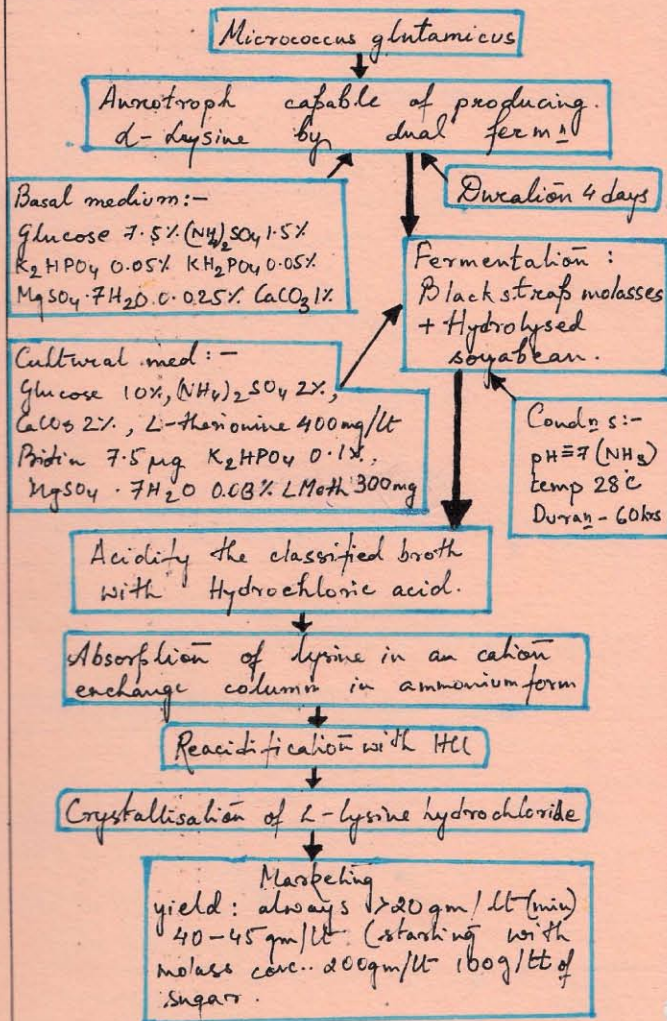 Micrococcus glutamicus
Auxotroph capable of producing.
L-Lysine by dual ferm n
Basal medium:-
Glucose 7.5% (NH4)2SO4 1.5%
K2HPO4 0.05% KH2PO4 0.05%
MgSO4·7H2O.0.025% CaCO3 1%
Duration 4 days
Fermentation :
Blackstrap molasses
+ Hydrolysed
soyabean.
Cultural med :-
Glucose 10%, (NH4)2SO4 2%,
CaCO3 2%, L-therionine 400mg/lt
Biotin 7.5 µg K2HPO4 0.1%,
MgSO4 · 7H2O 0.03% L Meth 300mg
Condn s:-
pH≡7 (NH3)
temp 28°C
Duran - 60hrs
Acidify the classified broth
with Hydrochloric acid.
Absorption of lysine in an cation
exchange column in ammonium form
Reacidification with HCl
Crystallisation of L-lysine hydrochloride
Marketing
yield: always >20gm/lt (min)
40-45gm/lt (starting with
molass conc.. 200gm/lt 100g/lt of
sugar.